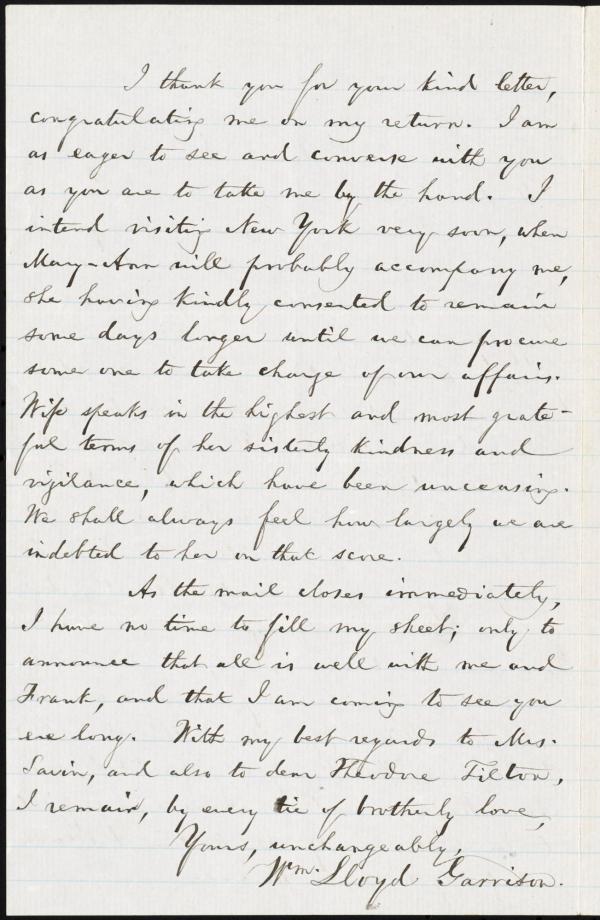 I thank you for your kind letter,
congratulating me on my return. I am
as eager to see and converse with you
as you are to take me by the hand. I
intend visiting New York very soon, when
Mary-Ann will probably accompany me,
she having kindly consented to remain
some days longer until we can procure
some one to take charge of our affairs.
Wife speaks in the highest and most grate-
ful terms of her sisterly kindness and
vigilance, which have been unceasing.
We shall always feel how largely we are
indebted to her on that score.
As the mail closes immediately,
I have no time to fill my sheet; only to
announce that all is well with me and
Frank, and that I am coming to see you
ere long. With my best regards to Mrs.
Savin, and also to dear Theodore Tilton,
I remain, by every tie of brotherly love,
Yours, unchangeably,
Wm. Lloyd Garrison.